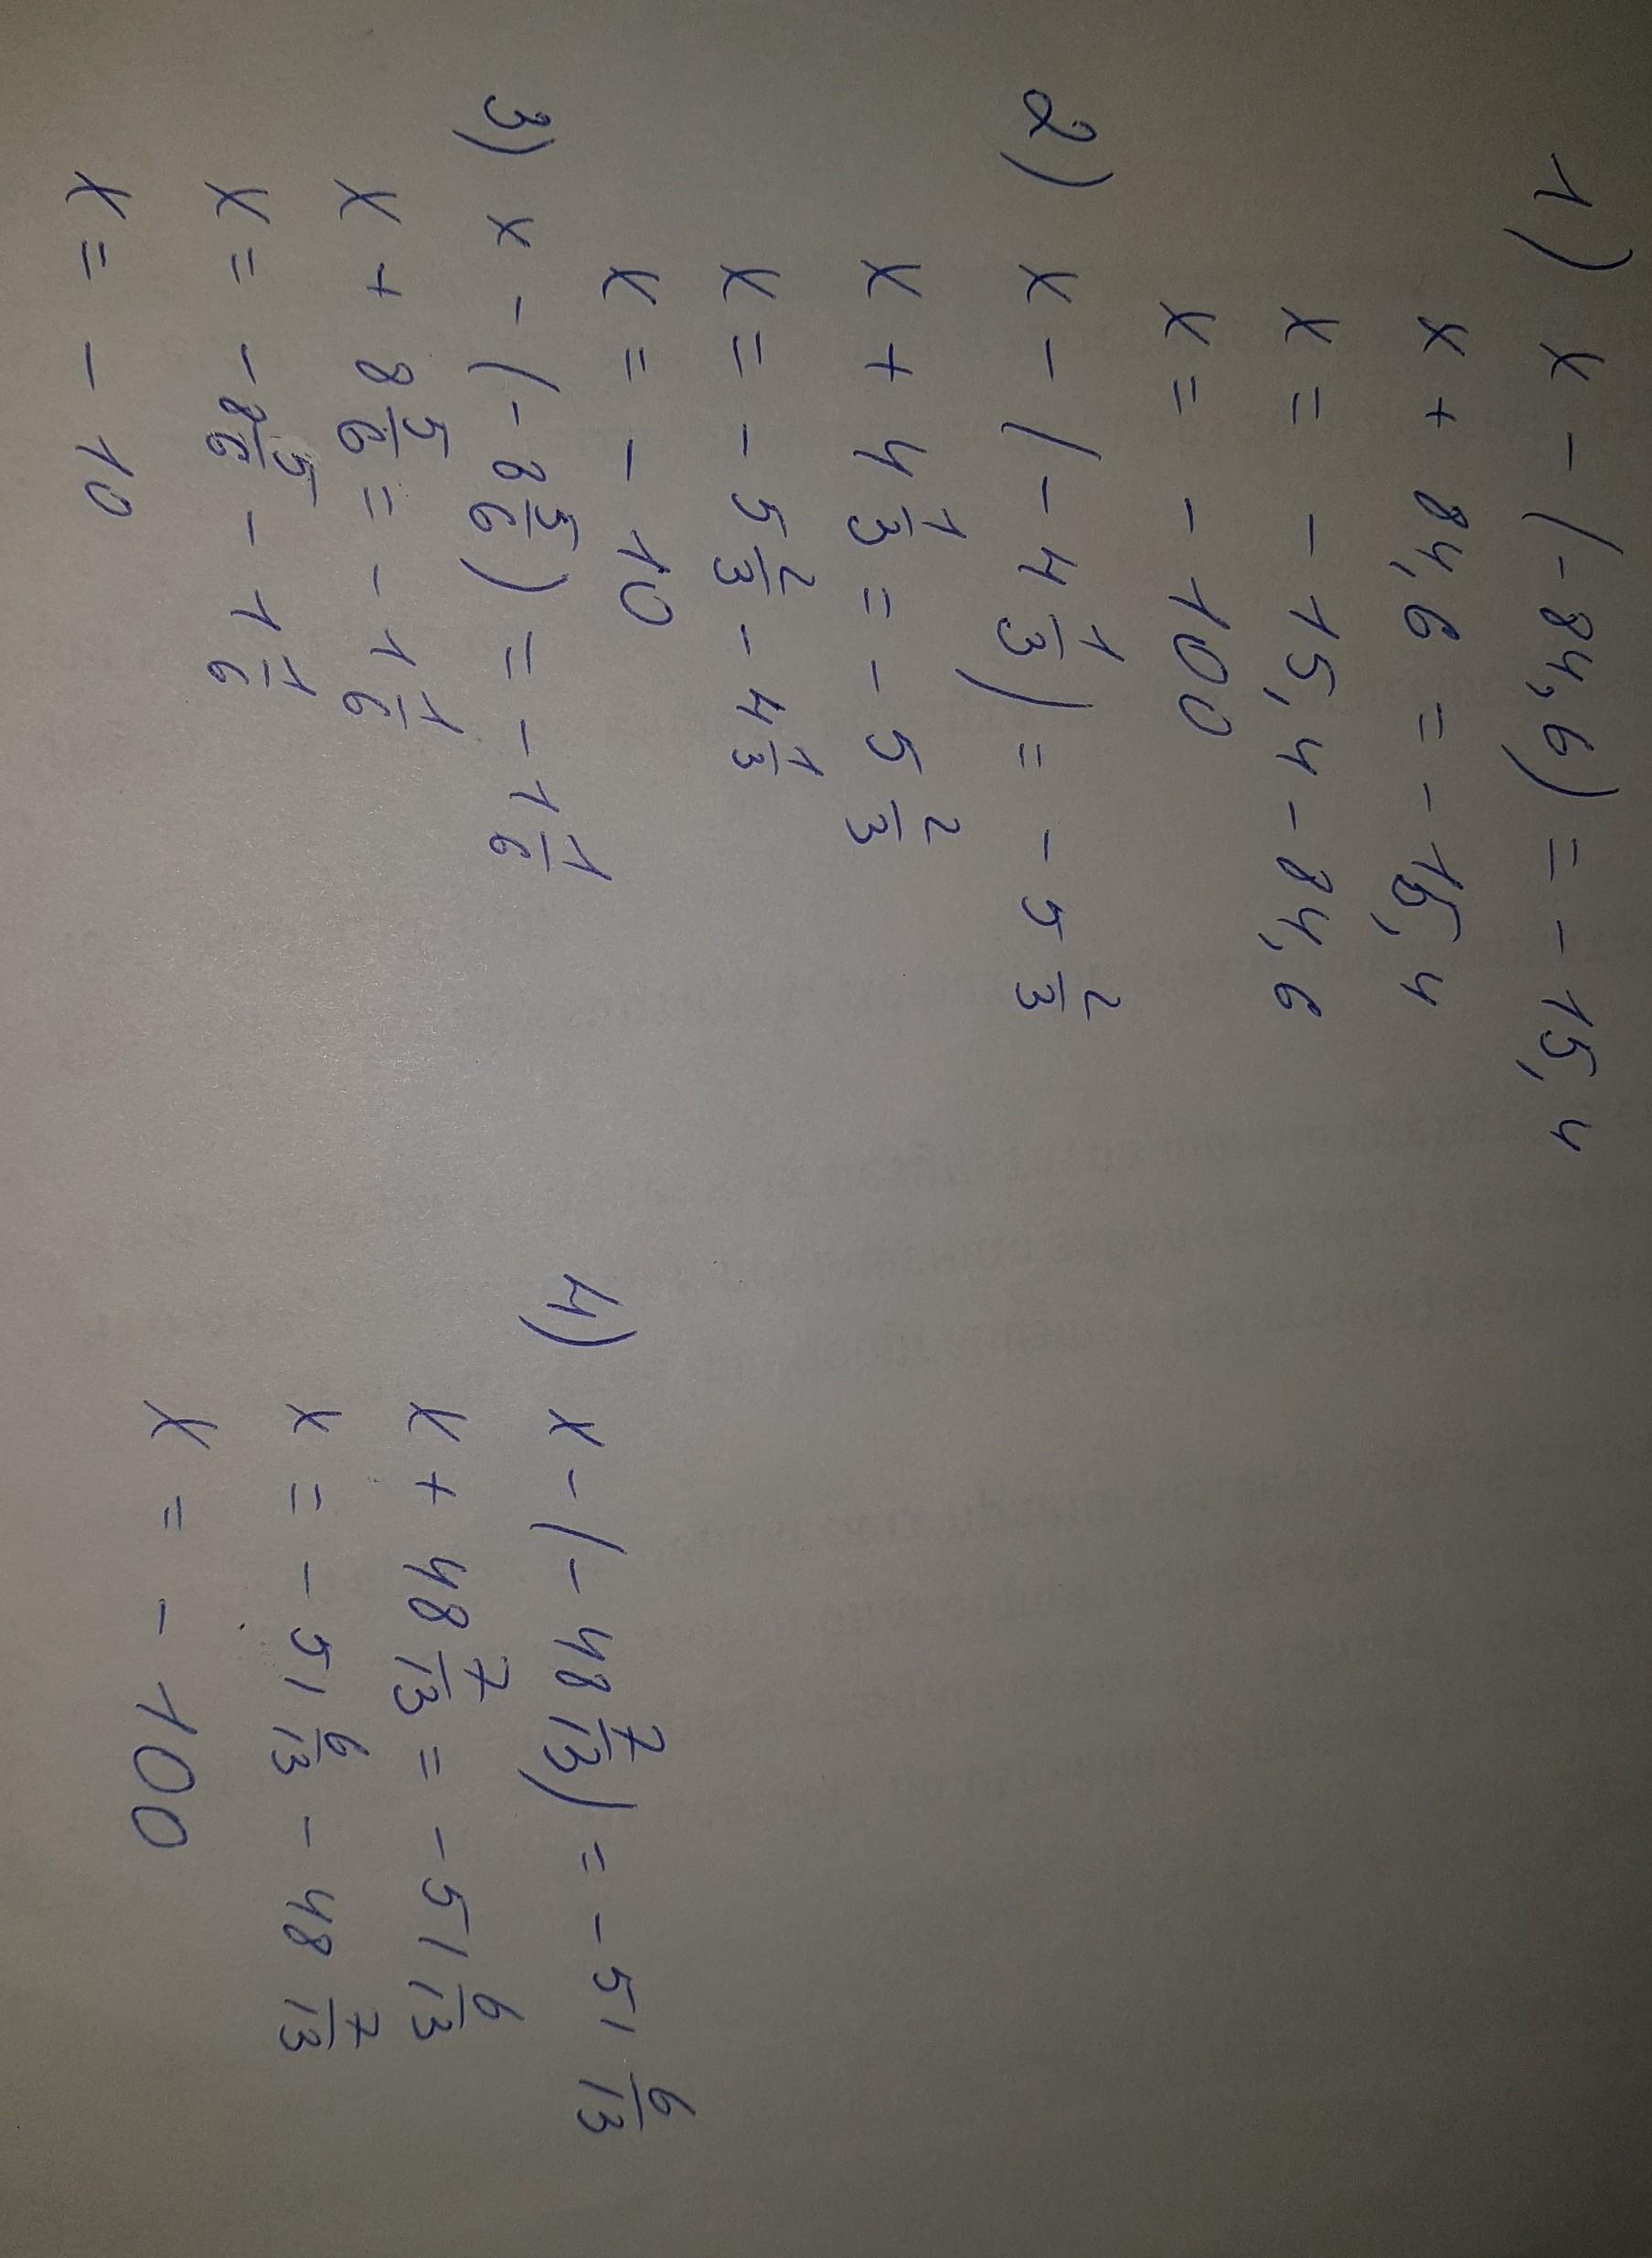 1) x - (- 84,6) = - 15,4
x + 84,6 = - 15,4
x = - 15,4 - 84,6
x = - 100
2) x - (- 4 1/3) = - 5 2/3
x + 4 1/3 = - 5 2/3
x = - 5 2/3 - 4 1/3
x = - 10
3) x - (- 8 5/6) = - 1 1/6
x + 8 5/6 = - 1 1/6
x = - 8 5/6 - 1 1/6
x = - 10
4) x - (- 48 7/13) = - 51 6/13
x + 48 7/13 = - 51 6/13
x = - 51 6/13 - 48 7/13
x = - 100